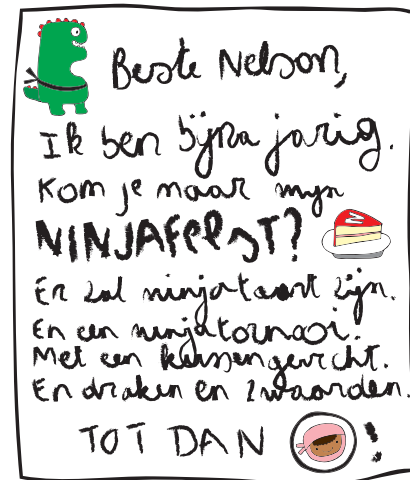 Beste Nelson,
Ik ben bijna jarig.
Kom je naar mijn
NINJAFEEST?
Er zal ninjataart zijn.
En een ninjatornooi.
Met een kussengevecht.
En draken en zwaarden.
TOT DAN !